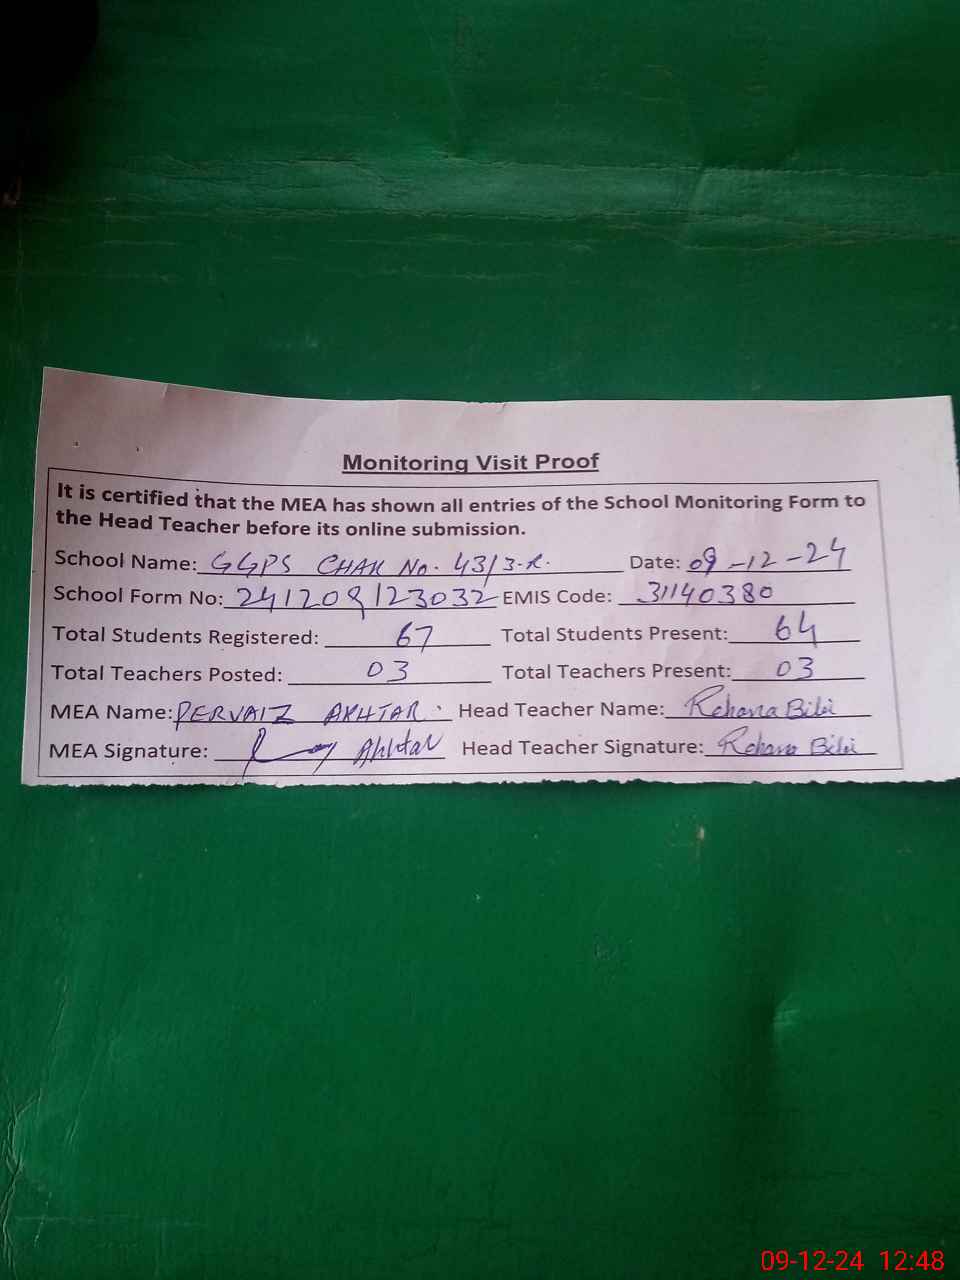 Monitoring Visit Proof
It is certified that the MEA has shown all entries of the School Monitoring Form to
the Head Teacher before its online submission.
School Name: GGPS CHAK No. 43/3-R. Date: 09-12-24
School Form No: 241209123032 EMIS Code: 31140380
Total Students Registered: 67 Total Students Present: 64
Total Teachers Posted: 03 Total Teachers Present: 03
MEA Name: PERVAIZ AKHTAR. Head Teacher Name: Rehana Bibi
MEA Signature: Akhtar Head Teacher Signature: Rehana Bibi
09-12-24 12:48